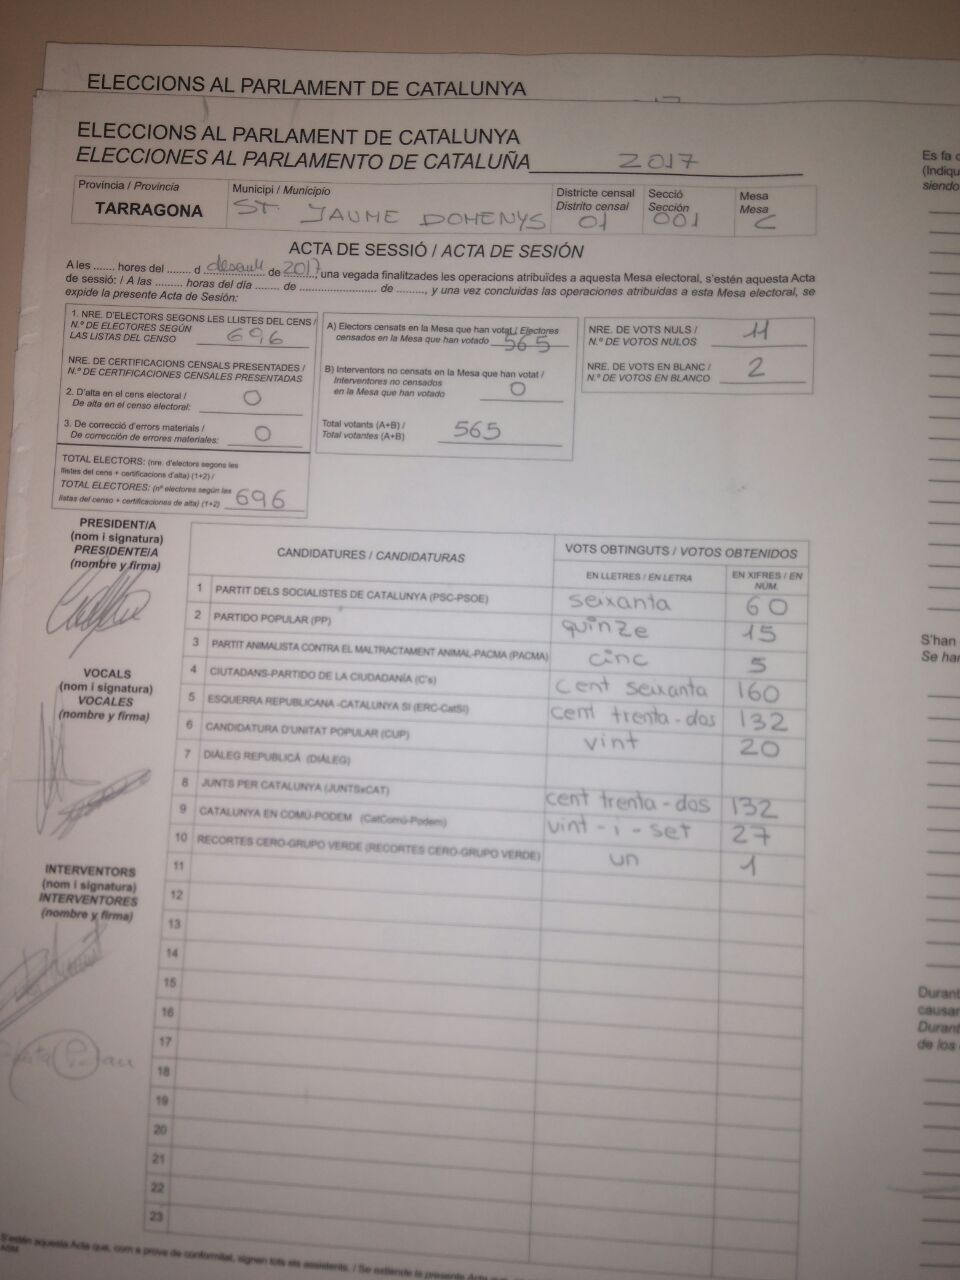 ELECCIONS AL PARLAMENT DE CATALUNYA
ELECCIONS AL PARLAMENT DE CATALUNYA
ELECCIONES AL PARLAMENTO DE CATALUÑA 2017
Província / Provincia
TARRAGONA
Municipi / Municipio
ST. JAUME DOMENYS
Districte censal
Distrito censal
01
Secció
Sección
001
Mesa
Mesa
C
ACTA DE SESSIÓ / ACTA DE SESIÓN
A les ....... hores del ........ d ............ de 2017, una vegada finalitzades les operacions atribuïdes a aquesta Mesa electoral, s'estén aquesta Acta
de sessió: / A las ......... horas del día ........ de ........................ de ........., y una vez concluidas las operaciones atribuidas a esta Mesa electoral, se
expide la presente Acta de Sesión:
1. NRE. D'ELECTORS SEGONS LES LLISTES DEL CENS /
N.º DE ELECTORES SEGÚN
LAS LISTAS DEL CENSO 696
NRE. DE CERTIFICACIONS CENSALS PRESENTADES /
N.º DE CERTIFICACIONES CENSALES PRESENTADAS
2. D'alta en el cens electoral /
De alta en el censo electoral: 0
3. De correcció d'errors materials /
De corrección de errores materiales: 0
TOTAL ELECTORS: (nre. d'electors segons les
llistes del cens + certificacions d'alta) (1+2) /
TOTAL ELECTORES: (nº electores según las
listas del censo + certificaciones de alta) (1+2) 696
A) Electors censats en la Mesa que han votat / Electores
censados en la Mesa que han votado 565
B) Interventors no censats en la Mesa que han votat /
Interventores no censados
en la Mesa que han votado 0
Total votants (A+B) /
Total votantes (A+B) 565
NRE. DE VOTS NULS /
N.º DE VOTOS NULOS 11
NRE. DE VOTS EN BLANC /
N.º DE VOTOS EN BLANCO 2
PRESIDENT/A
(nom i signatura)
PRESIDENTE/A
(nombre y firma)
VOCALS
(nom i signatura)
VOCALES
(nombre y firma)
INTERVENTORS
(nom i signatura)
INTERVENTORES
(nombre y firma)
CANDIDATURES / CANDIDATURAS
VOTS OBTINGUTS / VOTOS OBTENIDOS
EN LLETRES / EN LETRA
EN XIFRES / EN
NÚM.
1 PARTIT DELS SOCIALISTES DE CATALUNYA (PSC-PSOE) seixanta 60
2 PARTIDO POPULAR (PP) quinze 15
3 PARTIT ANIMALISTA CONTRA EL MALTRACTAMENT ANIMAL-PACMA (PACMA) cinc 5
4 CIUTADANS-PARTIDO DE LA CIUDADANÍA (C's) cent seixanta 160
5 ESQUERRA REPUBLICANA -CATALUNYA SÍ (ERC-CatSÍ) cent trenta-dos 132
6 CANDIDATURA D'UNITAT POPULAR (CUP) vint 20
7 DIÀLEG REPUBLICÀ (DIÀLEG)
8 JUNTS PER CATALUNYA (JUNTSxCAT) cent trenta-dos 132
9 CATALUNYA EN COMÚ-PODEM (CatComú-Podem) vint-i-set 27
10 RECORTES CERO-GRUPO VERDE (RECORTES CERO-GRUPO VERDE) un 1
11
12
13
14
15
16
17
18
19
20
21
22
23
S'estén aquesta Acta que, com a prova de conformitat, signen tots els assistents. / Se extiende la presente Acta que,
Es fa
(Indiqu
siendo
S'han
Se han
Durant
causar
Durant
de los